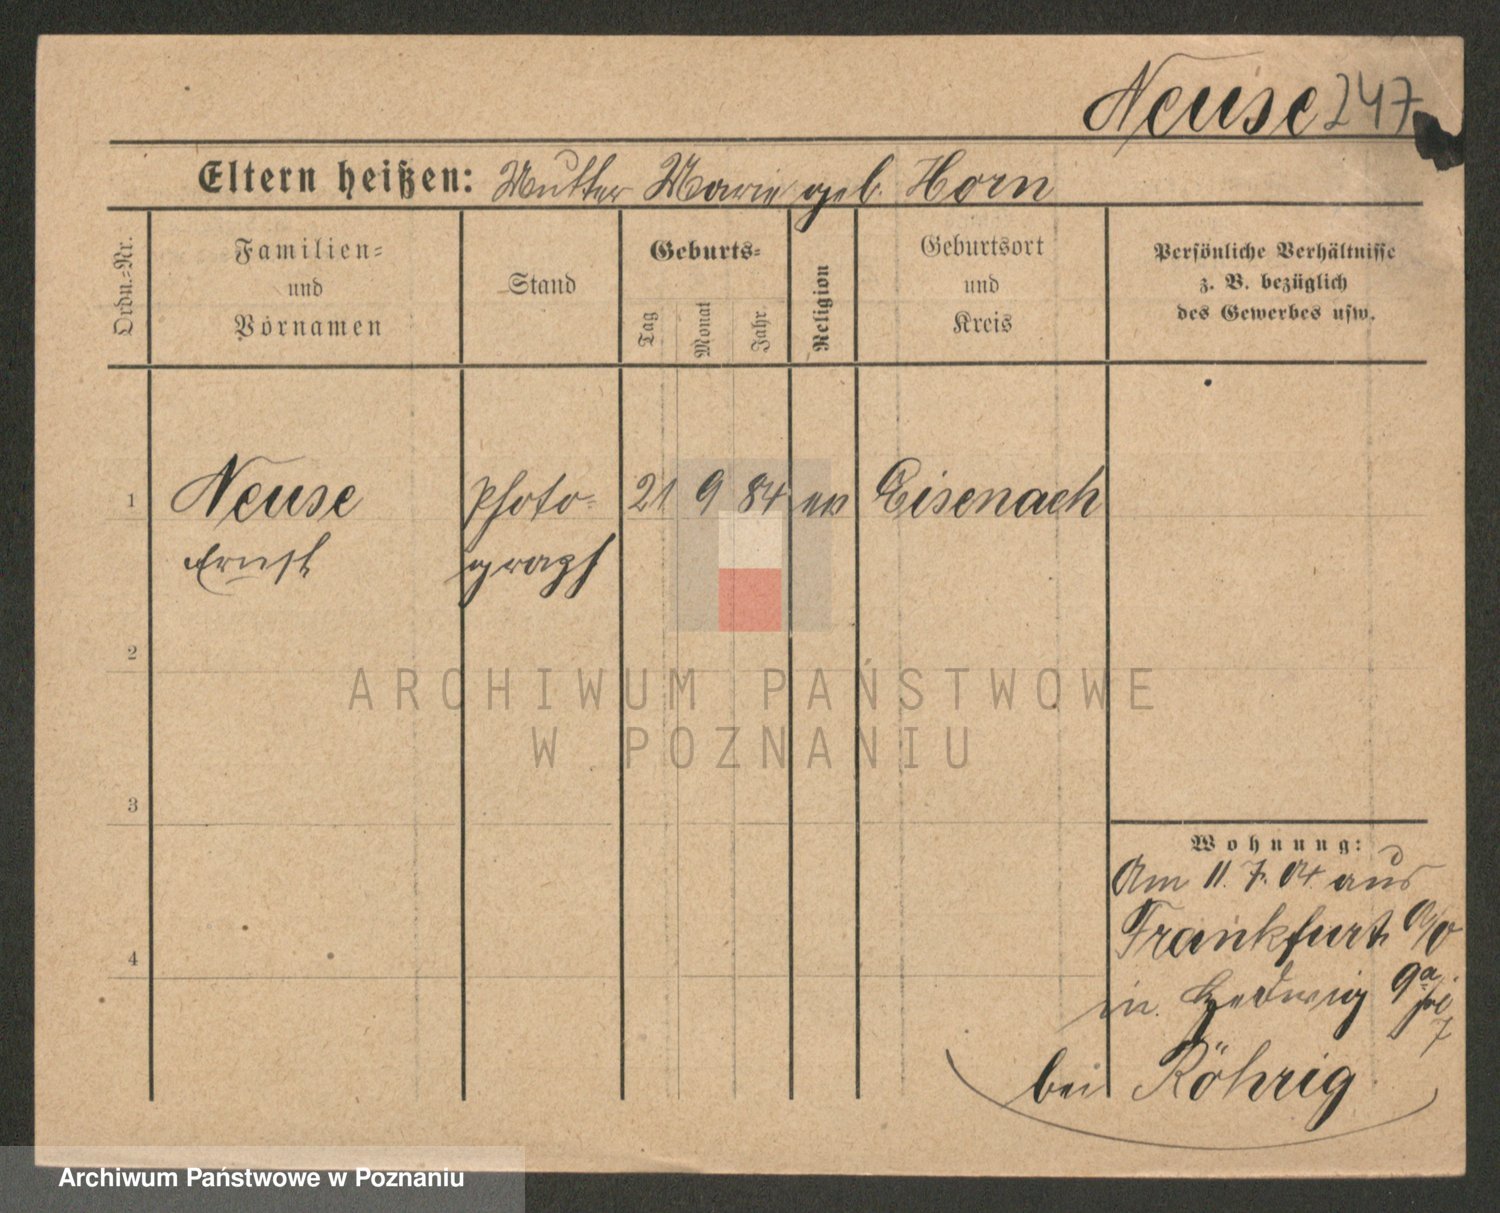 Neuse 247
Eltern heißen: Mutter Marie geb. Horn
Ordn.-Nr.
Familien-
und
Vornamen
Stand
Geburts-
Tag
Monat
Jahr
Religion
Geburtsort
und
Kreis
Persönliche Verhältnisse
z. B. bezüglich
des Gewerbes usw.
1 Neuse Photo- 21 9 84 ev Eisenach
Ernst graph
2
ARCHIWUM PAŃSTWOWE
W POZNANIU
3
Wohnung:
Am 11. 7. 04 aus
Frankfurt a/O
4
in Hedwig 9a
7
bei Röhrig
Archiwum Państwowe w Poznaniu